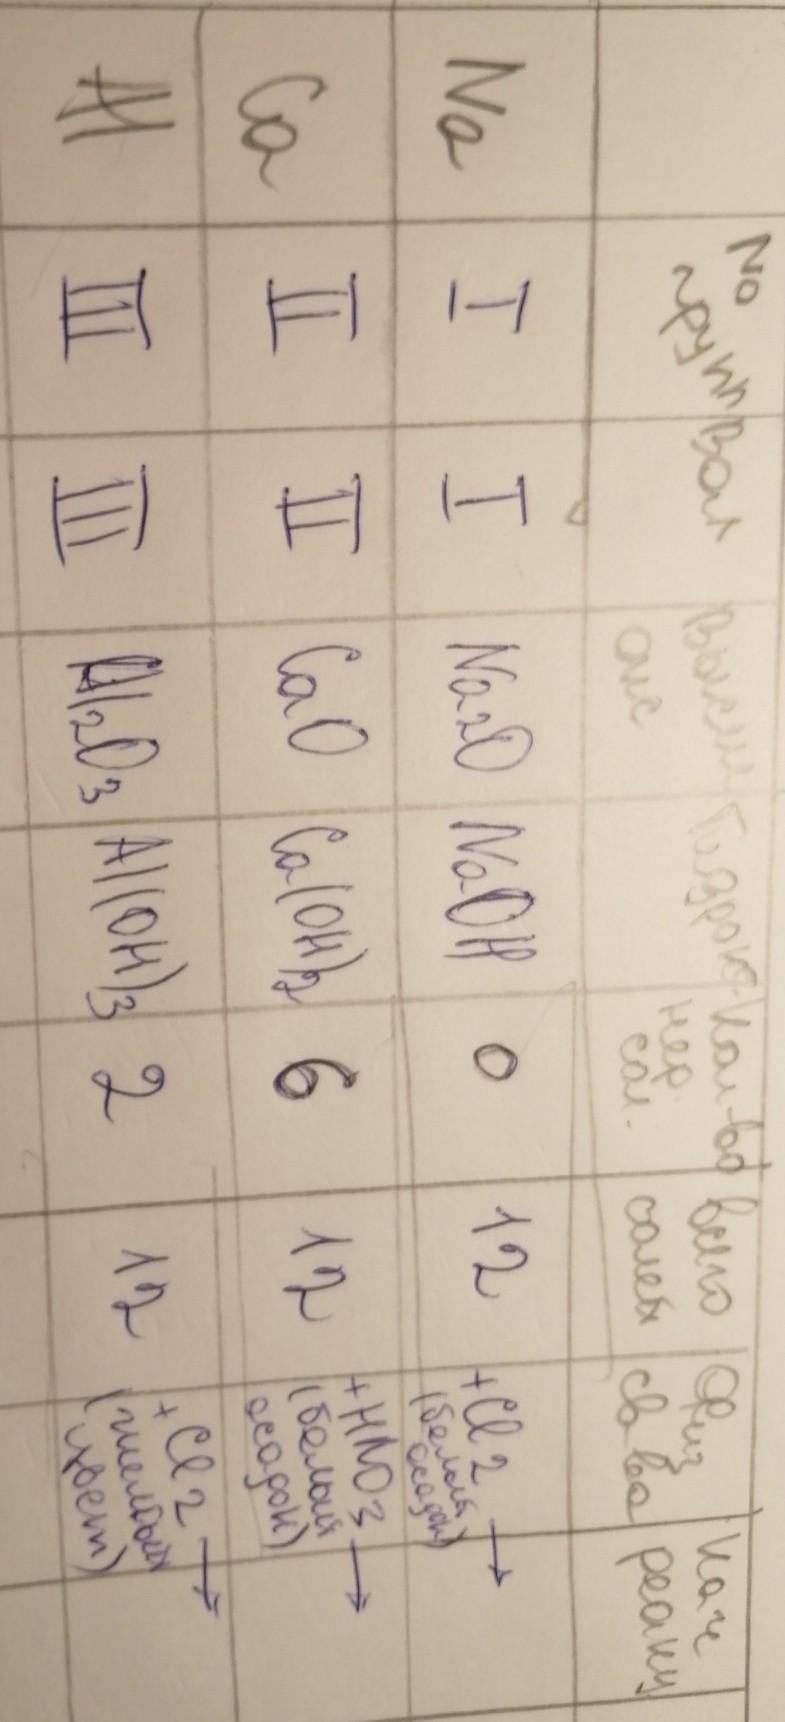 № групп
Вал
Высш
окс
Гидрокс
Кол-во
нер.
сол.
всего
солей
Физ
св ва
Кач
реакц
Na
I
I
Na2O
NaOH
0
12
+Cl2 →
(белый
осадок)
Ca
II
II
CaO
Ca(OH)2
6
12
+HNO3 →
(белый
осадок)
Al
III
III
Al2O3
Al(OH)3
2
12
+Cl2 →
(желтый
цвет)